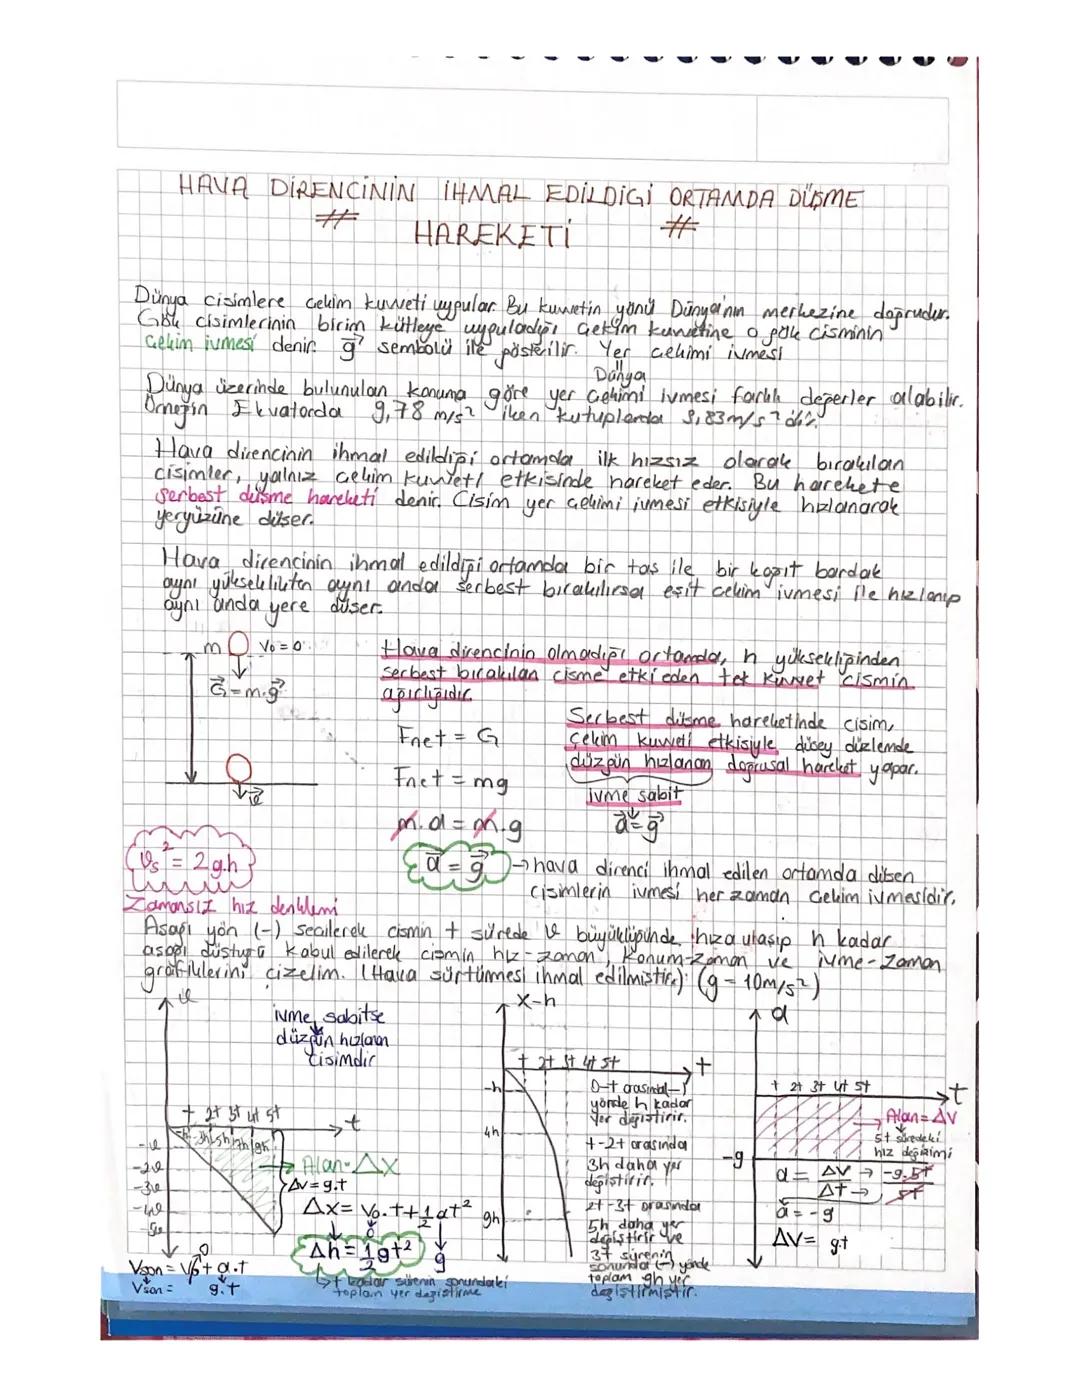 HAVA DİRENCİNİN İHMAL EDİLDİĞİ ORTAMDA DÜŞME
HAREKETİ
Dünya cisimlere çekim kuvveti uygular. Bu kuvvetin yönü Dünya'nın merkezine doğrudur.
Gök cisimlerinin birim kütleye uyguladığı çekim kuvvetine o gök cisminin
çekim ivmesi denir. g⃗ sembolü ile gösterilir. Yer çekimi ivmesi
Dünya
Dünya üzerinde bulunulan konuma göre yer çekimi ivmesi farklı değerler alabilir.
Örneğin Ekvatorda 9,78 m/s² iken kutuplarda 9,83 m/s² dir.
Hava direncinin ihmal edildiği ortamda ilk hızsız olarak bırakılan
cisimler, yalnız çekim kuvveti etkisinde hareket eder. Bu harekete
serbest düşme hareketi denir. Cisim yer çekimi ivmesi etkisiyle hızlanarak
yeryüzüne düşer.
Hava direncinin ihmal edildiği ortamda bir taş ile bir kağıt bardak
aynı yükseklikten aynı anda serbest bırakılırsa eşit çekim ivmesi ile hızlanıp
aynı anda yere düşer.
m V₀ = 0
G⃗ = m.g⃗
h
v⃗
Hava direncinin olmadığı ortamda, h yüksekliğinden
serbest bırakılan cisme etki eden tek kuvvet cismin
ağırlığıdır.
Fnet = G
Fnet = mg
m.a = m.g
a⃗ = g⃗ → hava direnci ihmal edilen ortamda düşen
cisimlerin ivmesi her zaman çekim ivmesidir.
Serbest düşme hareketinde cisim,
çekim kuvveti etkisiyle düşey düzlemde
düzgün hızlanan doğrusal hareket yapar.
ivme sabit
a⃗ = g⃗
Vs² = 2g.h
Zamansız hız denklemi
Aşağı yön (-) seçilerek cismin t sürede v büyüklüğünde hıza ulaşıp h kadar
aşağı düştüğü kabul edilerek cismin hız-zaman, konum-zaman ve ivme-zaman
grafiklerini çizelim. (Hava sürtünmesi ihmal edilmiştir.) (g = 10m/s²)
v
ivme sabitse
düzgün hızlanan
cisimdir
t 2t 3t 4t 5t
t
h 3h 5h 7h 9h
-v
-2v
-3v
-4v
-5v
Alan = ΔX
ΔV = g.t
ΔX = V₀.t + 1/2 at²
0
g
Δh = 1/2 gt²
t kadar sürenin sonundaki
toplam yer değiştirme
Vson = V₀ + a.t
0
Vson = g.t
x-h
t 2t 3t 4t 5t
t
-h
4h
9h
0-t arasında (-)
yönde h kadar
yer değiştirir.
t-2t arasında
3h daha yer
değiştirir.
2t-3t arasında
5h daha yer
değiştirir ve
3t sürenin
sonunda (-) yönde
toplam 9h yer
değiştirmiştir.
a
t 2t 3t 4t 5t
t
-g
Alan = ΔV
5t süredeki
hız değişimi
a = ΔV/Δt → -g.5t/5t
a⃗ = -g
ΔV = g.t